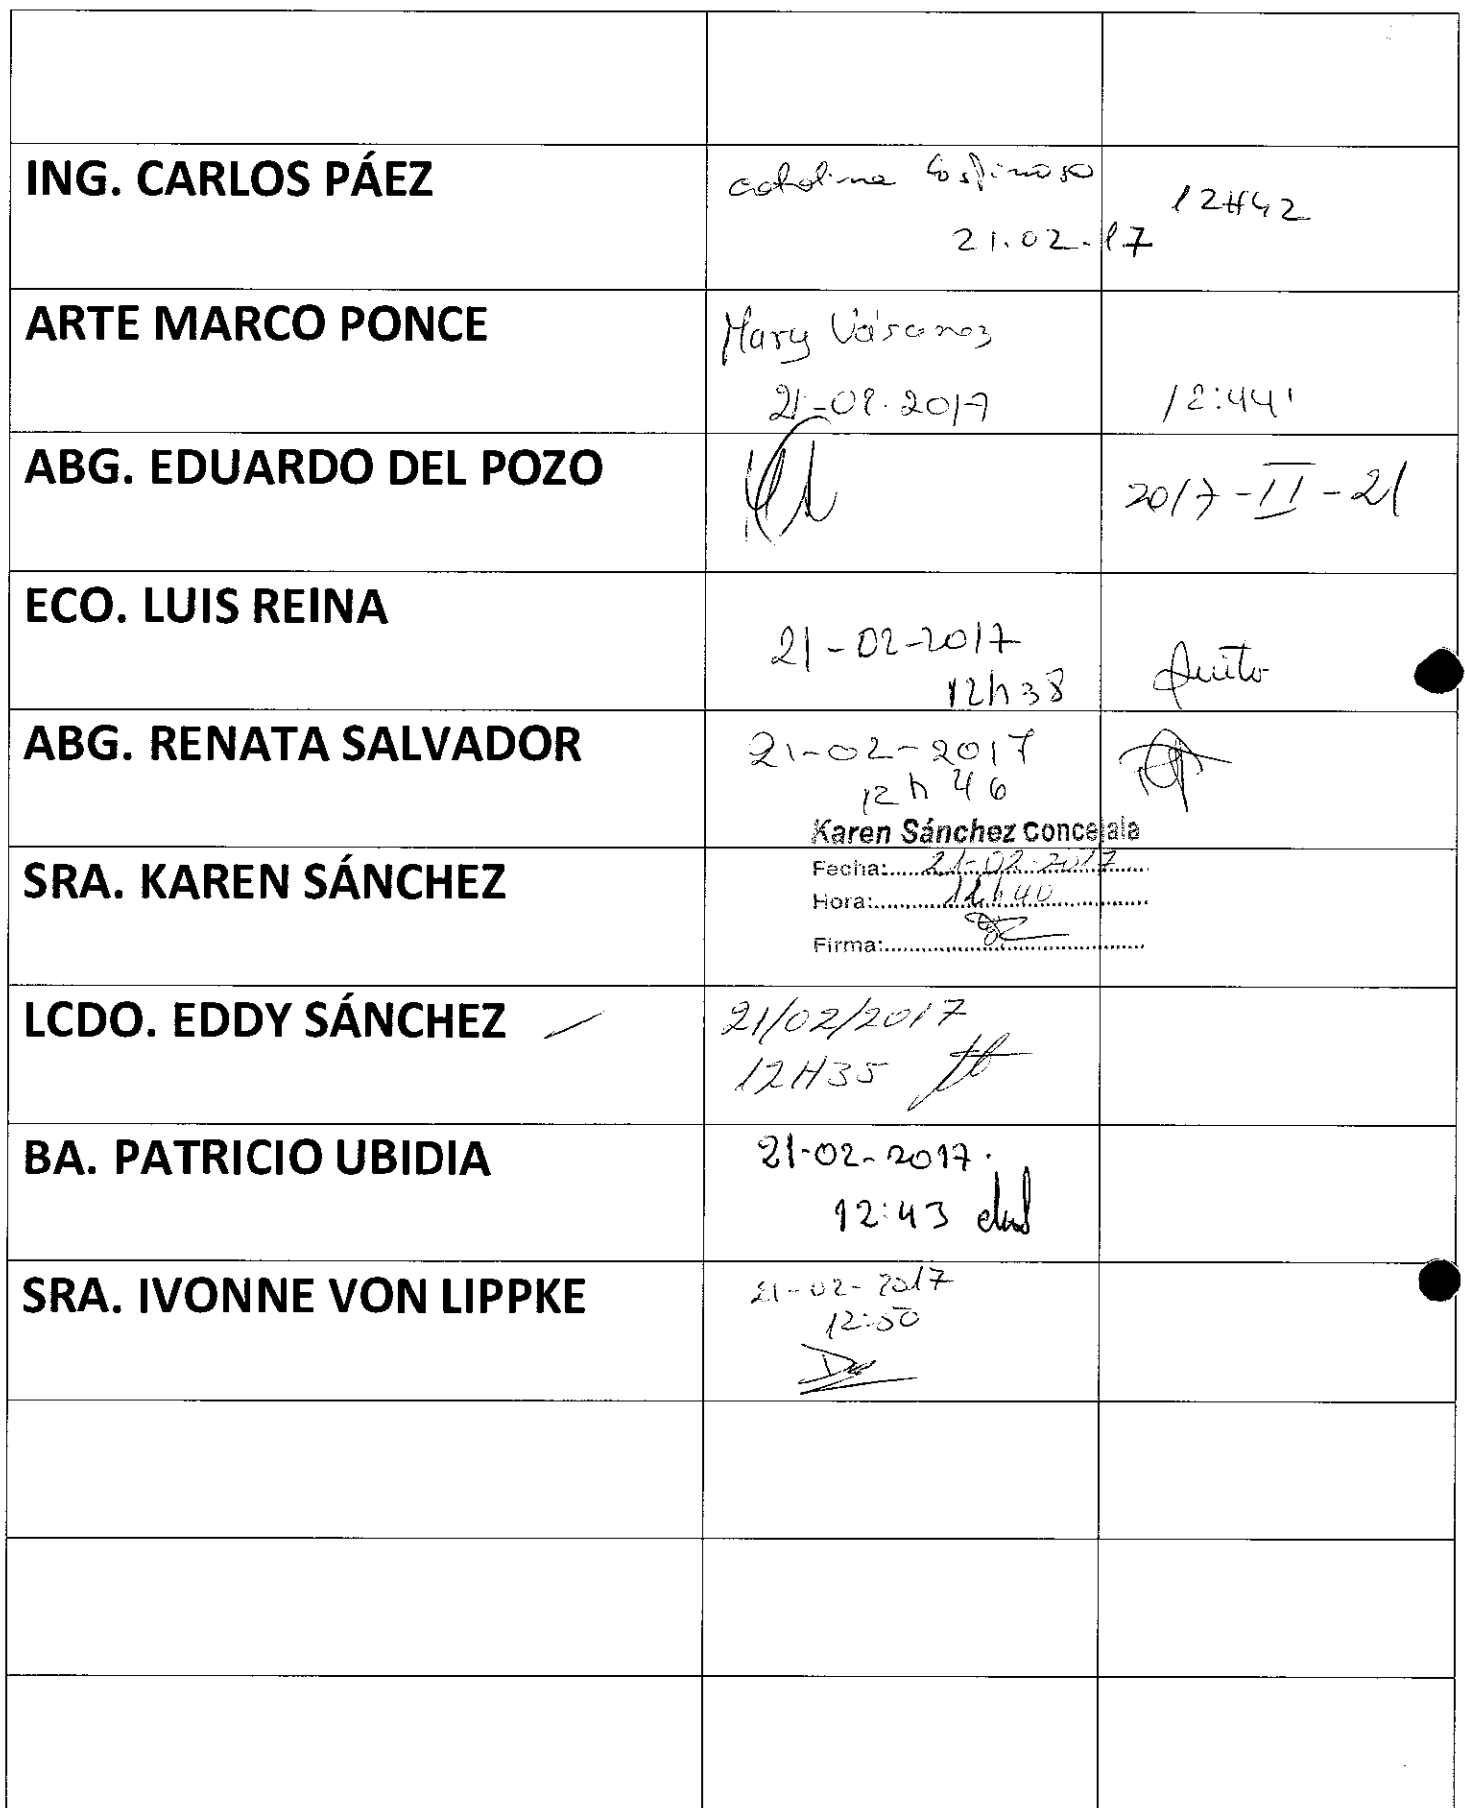 ING. CARLOS PÁEZ
21.02.17
12H42
ARTE MARCO PONCE
Mary Vásconez
21-02-2017
12:44'
ABG. EDUARDO DEL POZO
2017-II-21
ECO. LUIS REINA
21-02-2017
12h38
ABG. RENATA SALVADOR
21-02-2017
12h46
Karen Sánchez Concejala
SRA. KAREN SÁNCHEZ
Fecha: 21-02-2017
Hora: 12h40
Firma:
LCDO. EDDY SÁNCHEZ
21/02/2017
12H35
BA. PATRICIO UBIDIA
21-02-2017.
12:43
SRA. IVONNE VON LIPPKE
21-02-2017
12:50